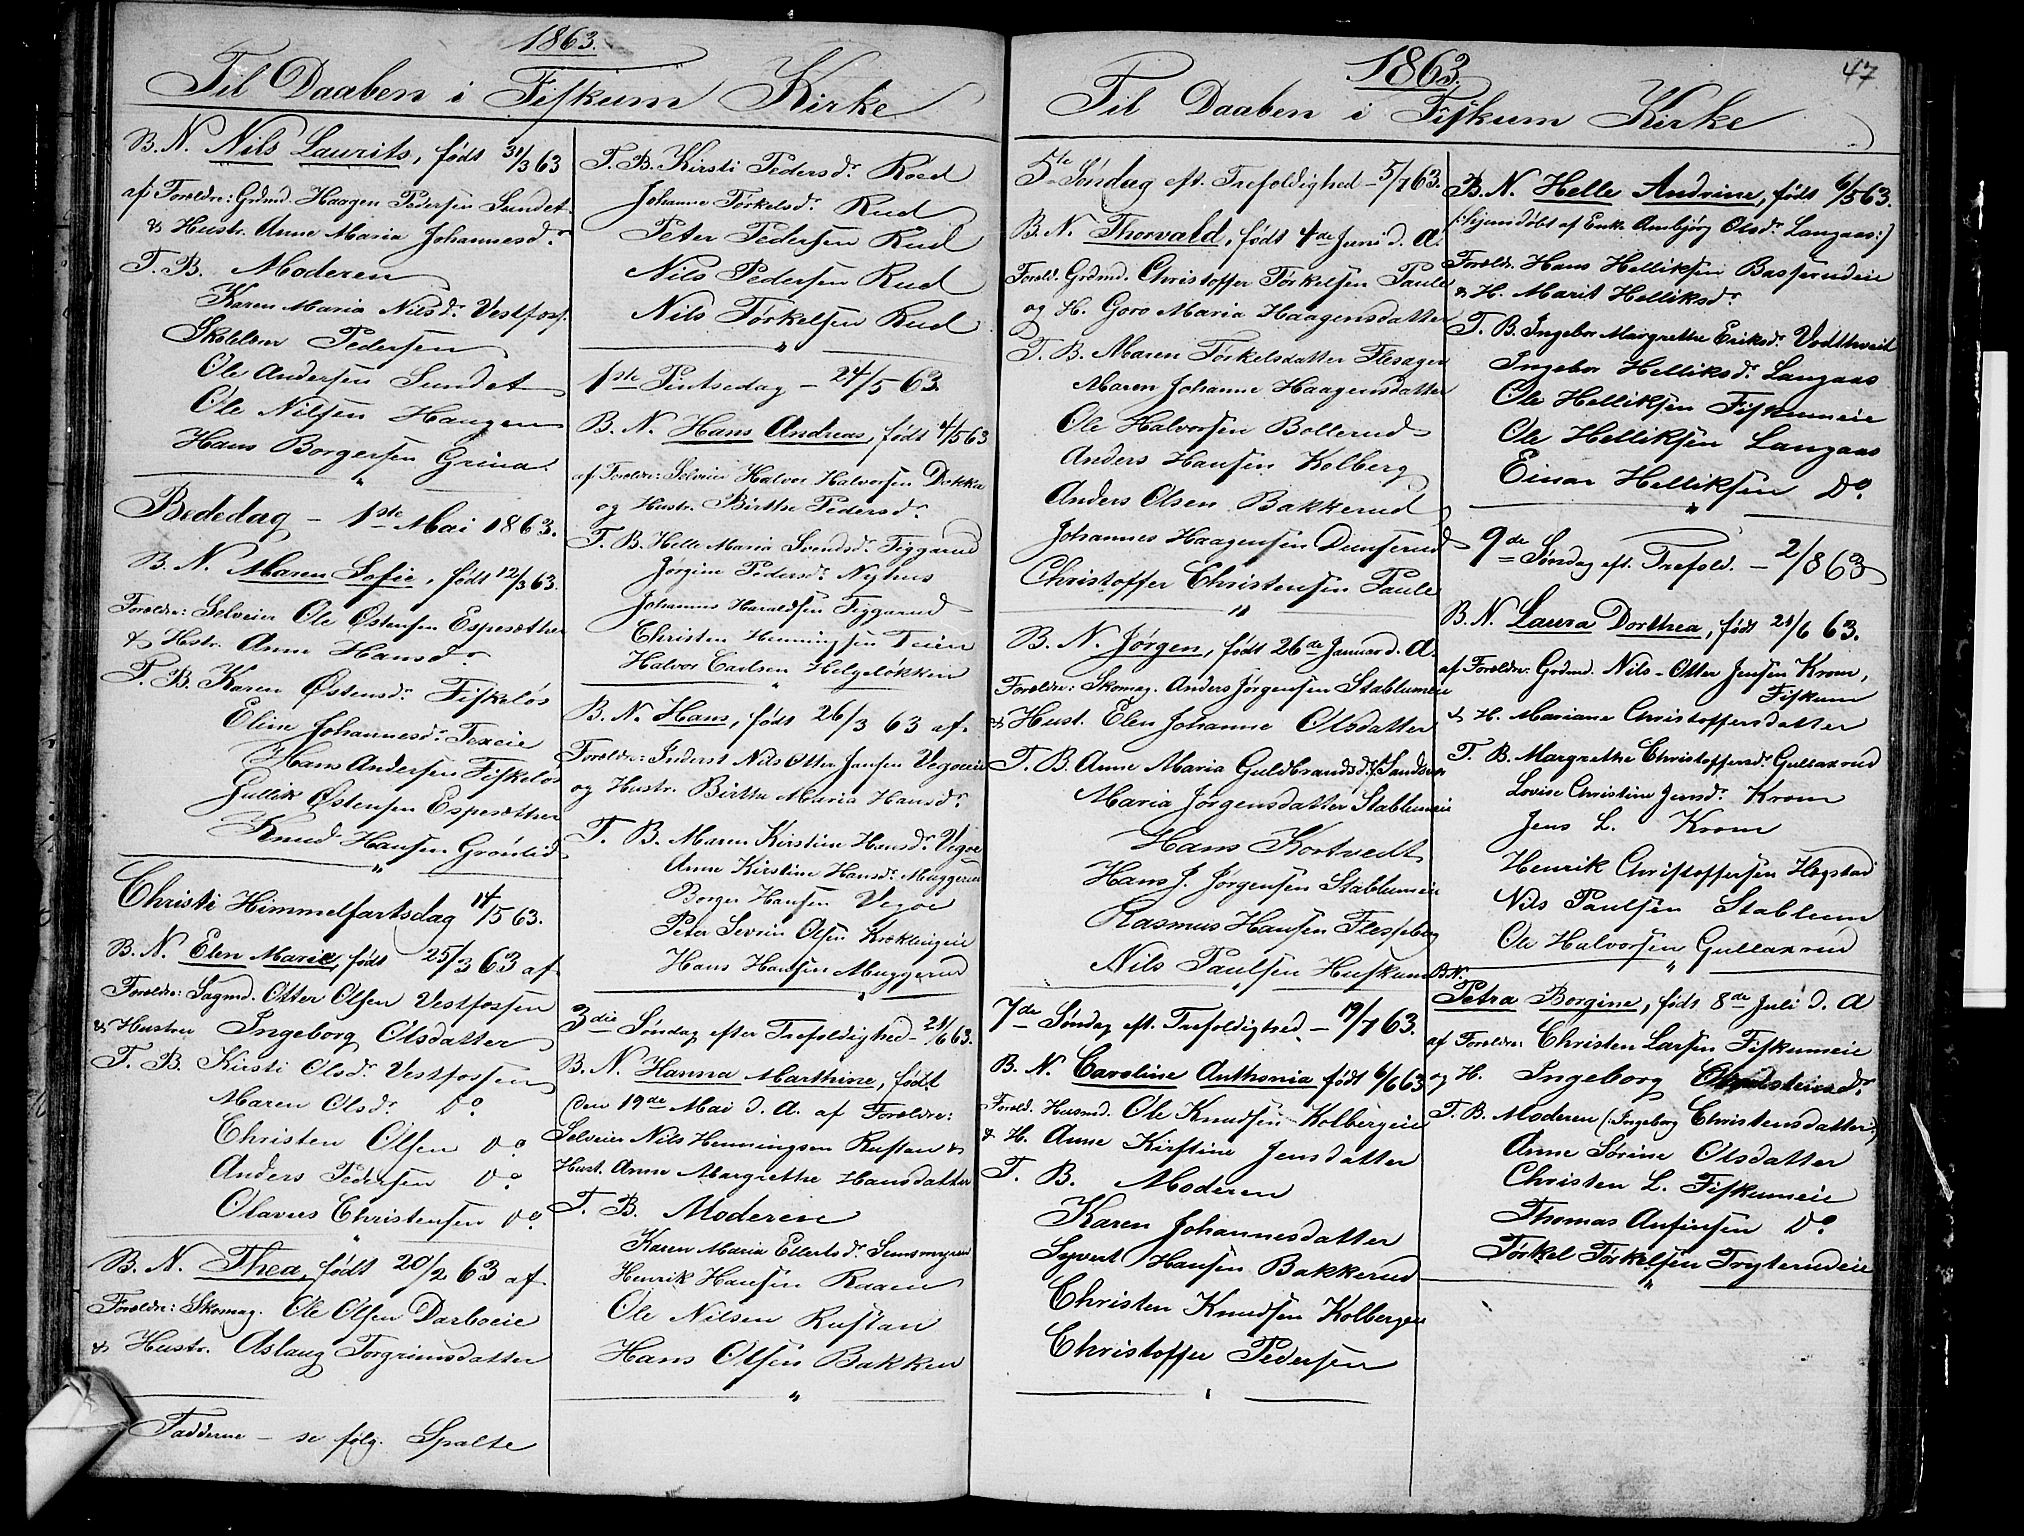 1863.
Til Daaben i Fiskum Kirke
B. N. Nils Laurits, født 31/3 63
af Foreldre: Grdmd. Haagen Pedersen Sundet
& Hustr. Anne Maria Johannesdr.
T. B. Moderen
Karen Maria Nilsdr. Vestfoss.
Pedersen
Ole Andersen Sundet
Ole Nilsen Haugen
Hans Borgersen Grina
"
Bededag - 1ste Mai 1863.
B. N. Maren Sofie, født 12/3 63.
Foreldre: Selveier Ole Østensen Espesæther
& Hstr. Anne Hansdr.
T. B. Karen Østensdr. Fiskeløs
Eline Johannesdr. Texeie
Hans Andersen Fiskeløs
Gullik Østensen Espesæther
Knud Hansen Grønlid
"
Christi Himmelfartsdag 14/5 63.
B. N. Elen Marie, født 25/3 63 af
Foreldre: Sagmd. Otter Olsen Vestfossen
& Hustrue Ingeborg Olsdatter
T. B. Kirsti Olsdr. Vestfossen
Maren Olsdr. Do.
Christen Olsen Do.
Anders Pedersen Do.
Olavus Christensen Do.
"
B. N. Thea, født 20/2 63 af
Foreldre: Skomag. Ole Olsen Darboeie
& Hustr. Aslaug Torgrimsdatter
Fadderne - se følg. Spalte
T. B. Kirsti Pedersdr. Roed
Johanne Torkelsdr. Rud
Peter Pedersen Rud
Nils Pedersen Rud
Nils Torkelsen Rud
"
1ste Pintsedag - 24/5 63.
B. N. Hans Andreas, født 4/5 63
af Foreldre: Selveier Halvor Halvorsen Dokka
og Hustr. Birthe Pedersdr.
T. B. Helle Maria Svendsdr. Figgerud
Jørgine Pedersdr. Nyhus
Johannes Haraldsen Figgerud
Christen Henningsen Teien
Halvor Carlsen Helgeløkken
"
B. N. Hans, født 26/3 63 af
Foreldre: Inderst Nils Otter Jansen Vegoeie
og Hustr. Birthe Maria Hansdr.
T. B. Maren Kirstine Hansdr. Vegoe
Anne Kirstine Hansdr. Muggerud
Borger Hansen Vegoe
Peter Sevrin Olsen Kroklingeie
Hans Hansen Muggerud
"
3die Søndag efter Trefoldighed - 21/6 63.
B. N. Hanna Marthine, født
den 19de Mai d. A. af Foreldre:
Selveier Nils Henningsen Rustan &
Hust. Anne Margrethe Hansdatter
T. B. Moderen
Karen Maria Ellertsdr. Semsmyren
Henrik Hansen Raaen
Ole Nilsen Rustan
Hans Olsen Bakken
"
1863.
47
Til Daaben i Fiskum Kirke
5te Søndag eft. Trefoldighed - 5/7 63.
B. N. Thorvald, født 4de Juni d. A.
Foreld. Grdmd. Christoffer Torkelsen Paule
og H. Goro Maria Haagensdatter
T. B. Maren Torkelsdatter Flesager
Maren Johanne Haagensdatter
Ole Halvorsen Bollerud
Anders Hansen Kolberg
Anders Olsen Bakkerud
Johannes Haagensen Dunserud
Christoffer Christensen Paule
"
B. N. Jørgen, født 26de Januar d. A.
Foreldre: Skomag. Anders Jørgensen Stablumeie
& Hust. Elen Johanne Olsdatter
T. B. Anne Maria Guldbrandsdr.
Maria Jørgensdatter Stablumeie
Hans Kortvedt
Hans J. Jørgensen Stablumeie
Rasmus Hansen Flesseberg
Nils Paulsen Huskum
"
7de Søndag eft. Trefoldighed - 19/7 63.
B. N. Caroline Anthonia født 6/6 63
Foreld. Husmd. Ole Knudsen Kolbergeie
& H. Anne Kirstine Jensdatter
T. B. Moderen
Karen Johannesdatter
Syvert Hansen Bakkerud
Christen Knudsen Kolbergeie
Christoffer Pedersen
B. N. Helle Andrine, født 6/5 63.
(:hjemdøbt af Enke Annbjørg Olsdr. Langaas:)
Foreldr. Hans Helliksen Basserudeie
& H. Marit Helliksdr.
T. B. Ingebor Margrethe Eriksdr. Vedthveit
Ingebor Helliksdr. Langaas
Ole Helliksen Fiskumeie
Ole Helliksen Langaas
Einar Helliksen Do.
"
9de Søndag eft. Trefold. - 2/8 63
B. N. Laura Dorthea, født 21/6 63.
af Foreldre: Grdmd. Nils-Otter Jensen Krom,
Fiskum
& H. Mariane Christoffersdatter
T. B. Margrethe Christoffersdr. Gullaxrud
Lovise Christine Jensdr. Krom
Jens L. Krom
Henrik Christoffersen Hogstad
Nils Paulsen Stablum
Ole Halvorsen Gullaxrud
"
B. N.
Petra Borgine, født 8de Juli d. A
af Foreldre: Christen Larsen Fiskumeie
og H. Ingeborg Christensdr.
T. B. Moderen (:Ingeborg Christensdatter:)
Anne Sørine Olsdatter
Christen L. Fiskumeie
Thomas Anfinsen Do.
Torkel Torkelsen Tryterudeie
"